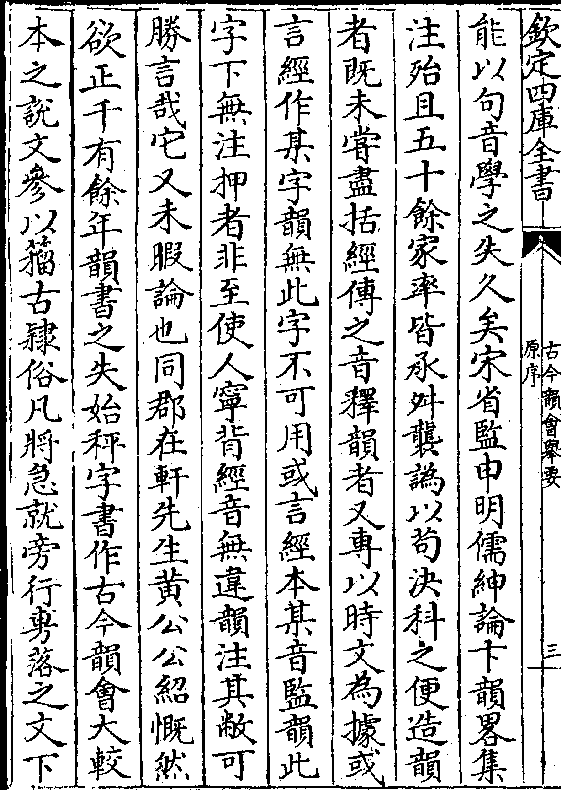 欽定四庫全書
古今韻會舉要
原序
三
能以句音學之失久矣宋省監申明儒紳論卞韻畧集
注殆且五十餘家率皆承舛襲譌以苟決科之便造韻
者既未嘗盡括經傳之音釋韻者又專以時文為據或
言經作某字韻無此字不可用或言經本某音監韻此
字下無注押者非至使人寧背經音無違韻注其敝可
勝言哉它又未暇論也同郡在軒先生黄公公紹慨然
欲正千有餘年韻書之失始秤字書作古今韻會大較
本之說文參以籀古隸俗凡將急就旁行旉落之文下